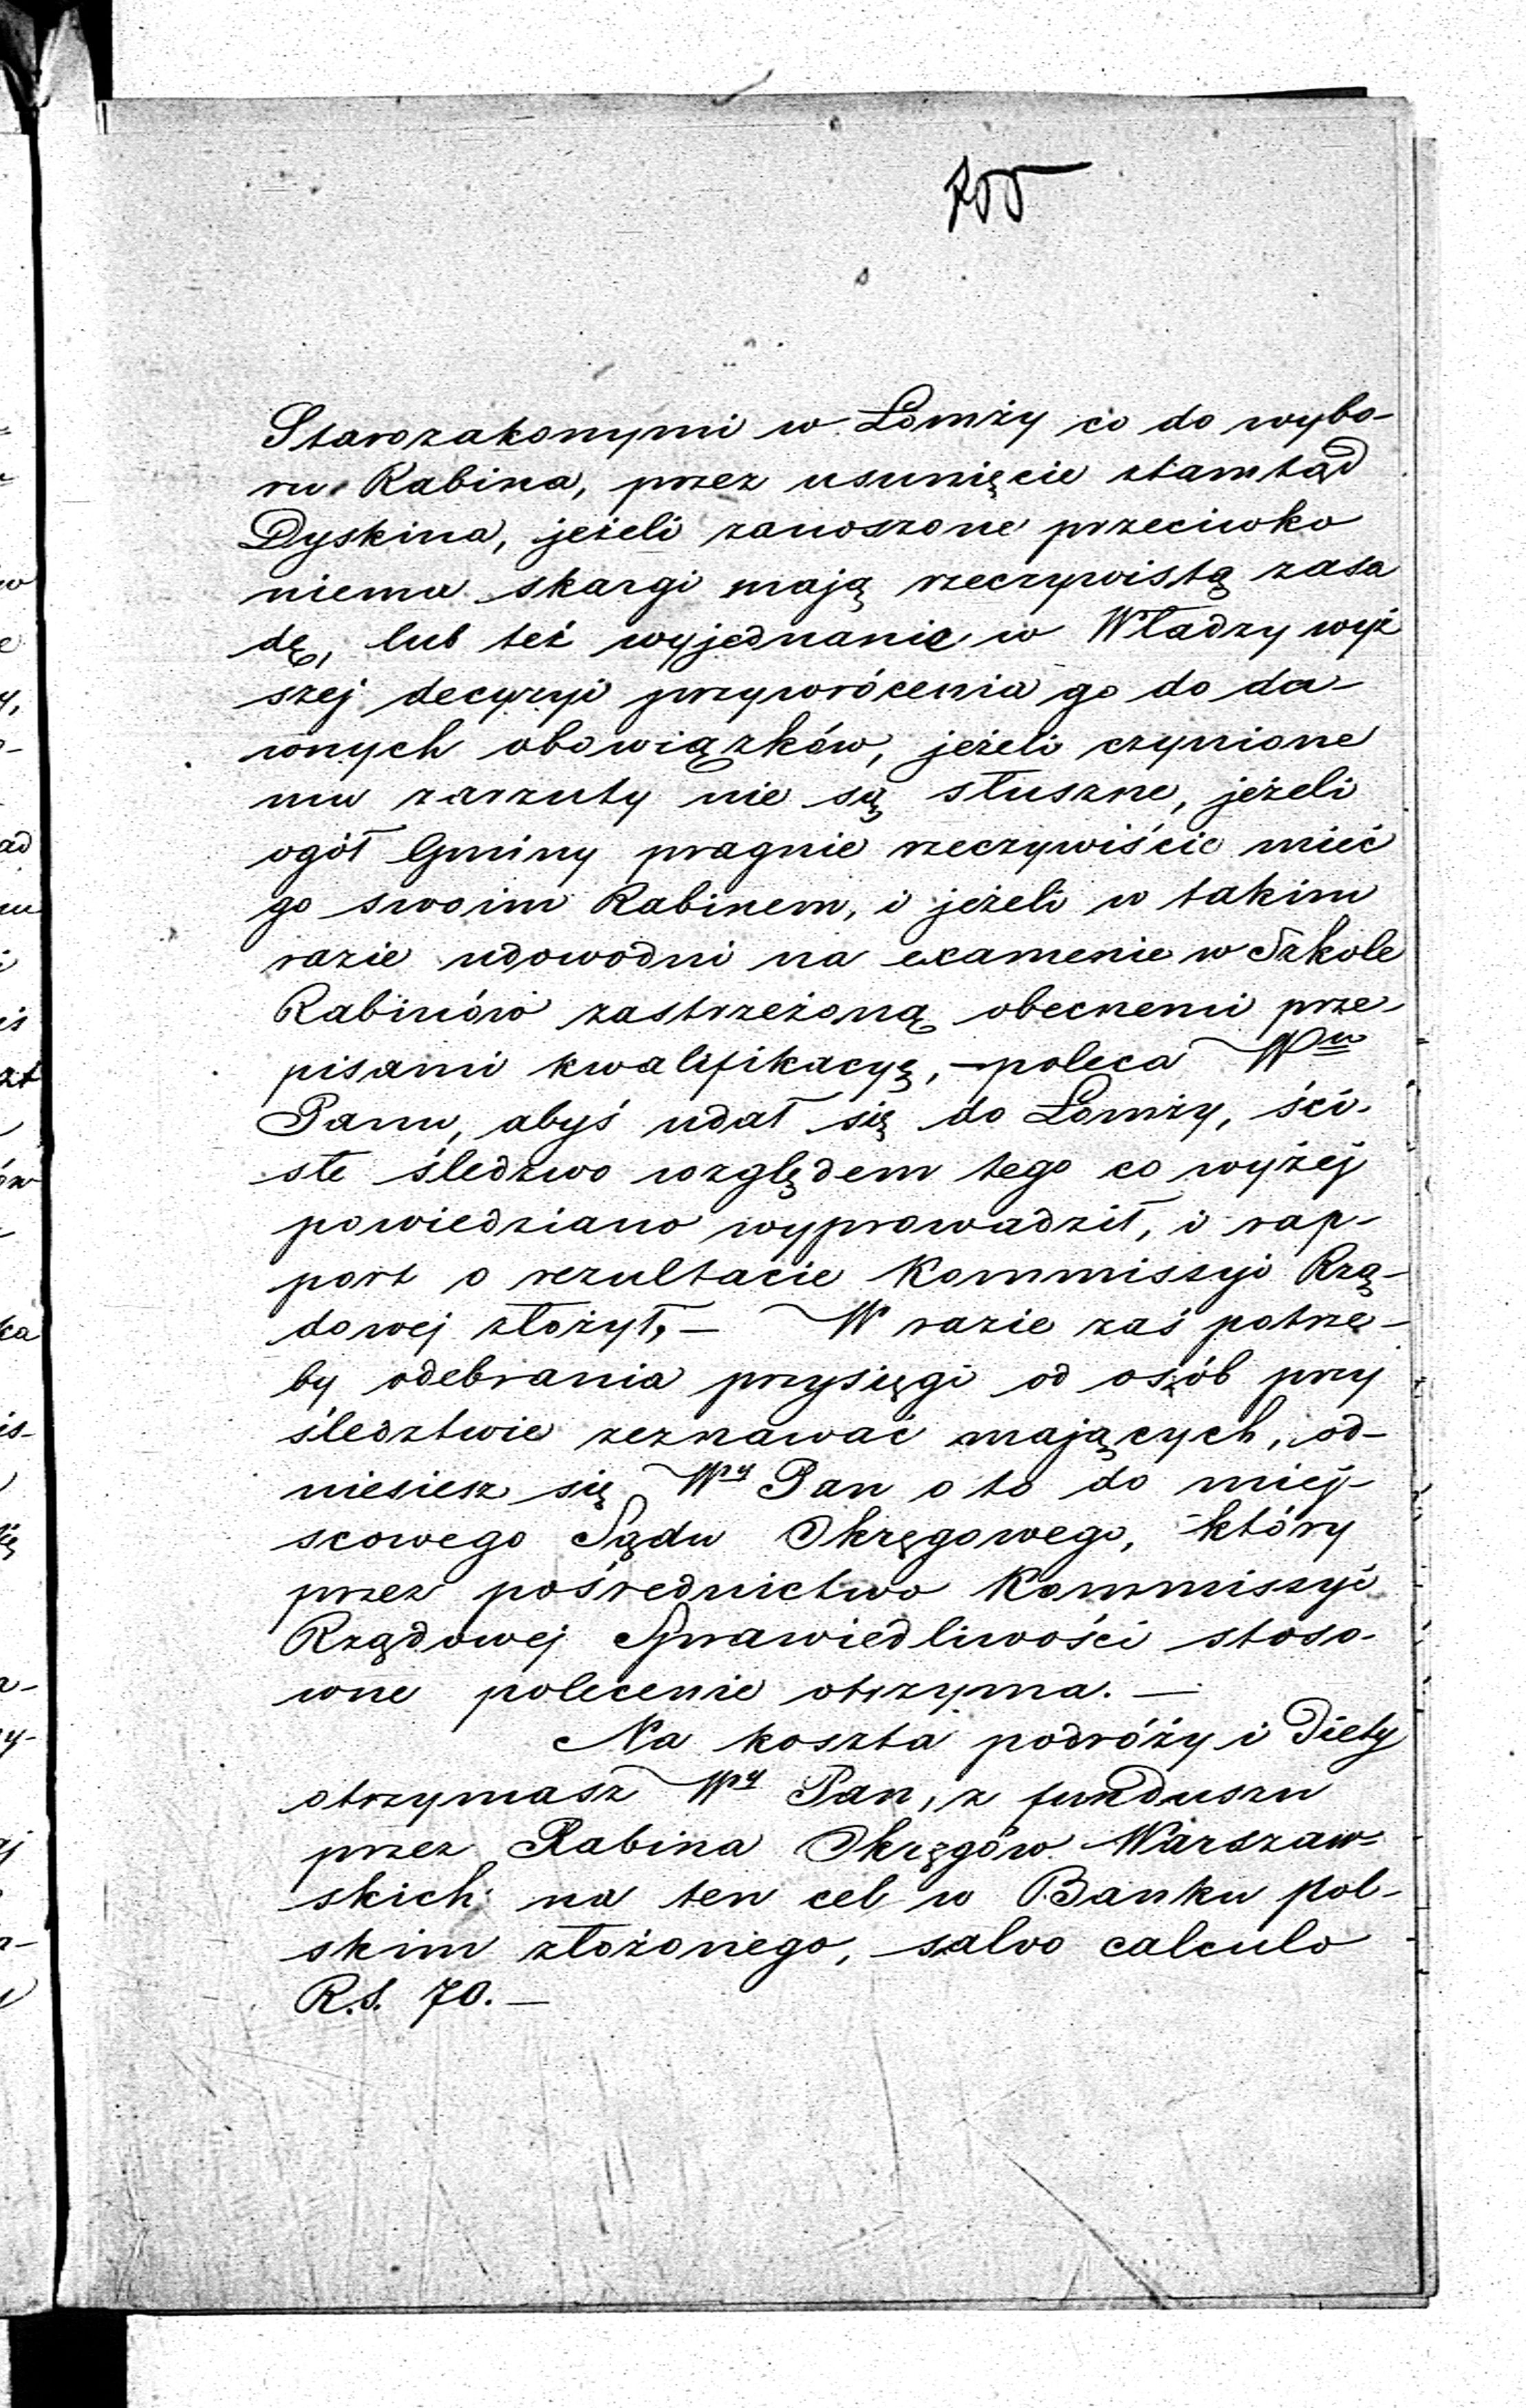 Starozakonymi w Łomży co do wybo-
ru Rabina, przez usunięcie ztamtąd
Dyskina, jeżeli zanoszone przeciwko
niemu skargi mają rzeczywistą zasa
dę, lub też wyjednanie w Władzy wyż
szej decyzyi przywrócenia go do da-
wnych obowiązków, jeżeli czynione
mu zarzuty nie są słuszne, jeżeli
ogół Gminy pragnie rzeczywiście mieć
go swoim Rabinem, i jeżeli w takim
razie udowodni na examenie w Szkole
Rabinów zastrzeżoną obecnemi prze-
pisami kwalifikacyę, – poleca Wu
Panu, abyś udał się do Łomży, ści-
słe śledztwo względem tego co wyżej
powiedziano wyprowadził, i rap-
port o rezultacie Kommissyi Rzą-
dowej złożył, – W razie zaś potrze-
by odebrania przysięgi od osób przy
śledztwie zeznawać mających, od-
niesiesz się Wy Pan o to do miej-
scowego Sądu Okręgowego, który
przez pośrednictwo Kommissyi
Rządowej Sprawiedliwości stoso-
wne polecenie otrzyma. –
Na koszta podróży i Diety
otrzymasz Wy Pan, z funduszu
przez Rabina Okręgów Warszaw-
skich na ten cel w Banku pol-
skim złożonego, salvo calculo
R.S. 70. –